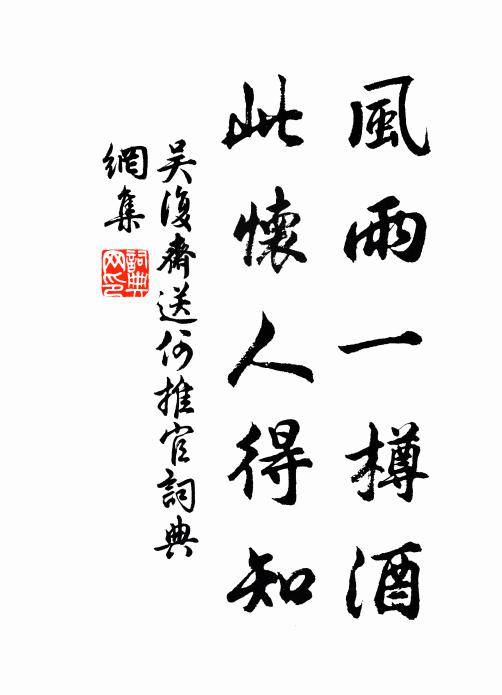 風雨一樽酒
此懷人得知
吴復齋送何推官詞典
網集
詞典网印